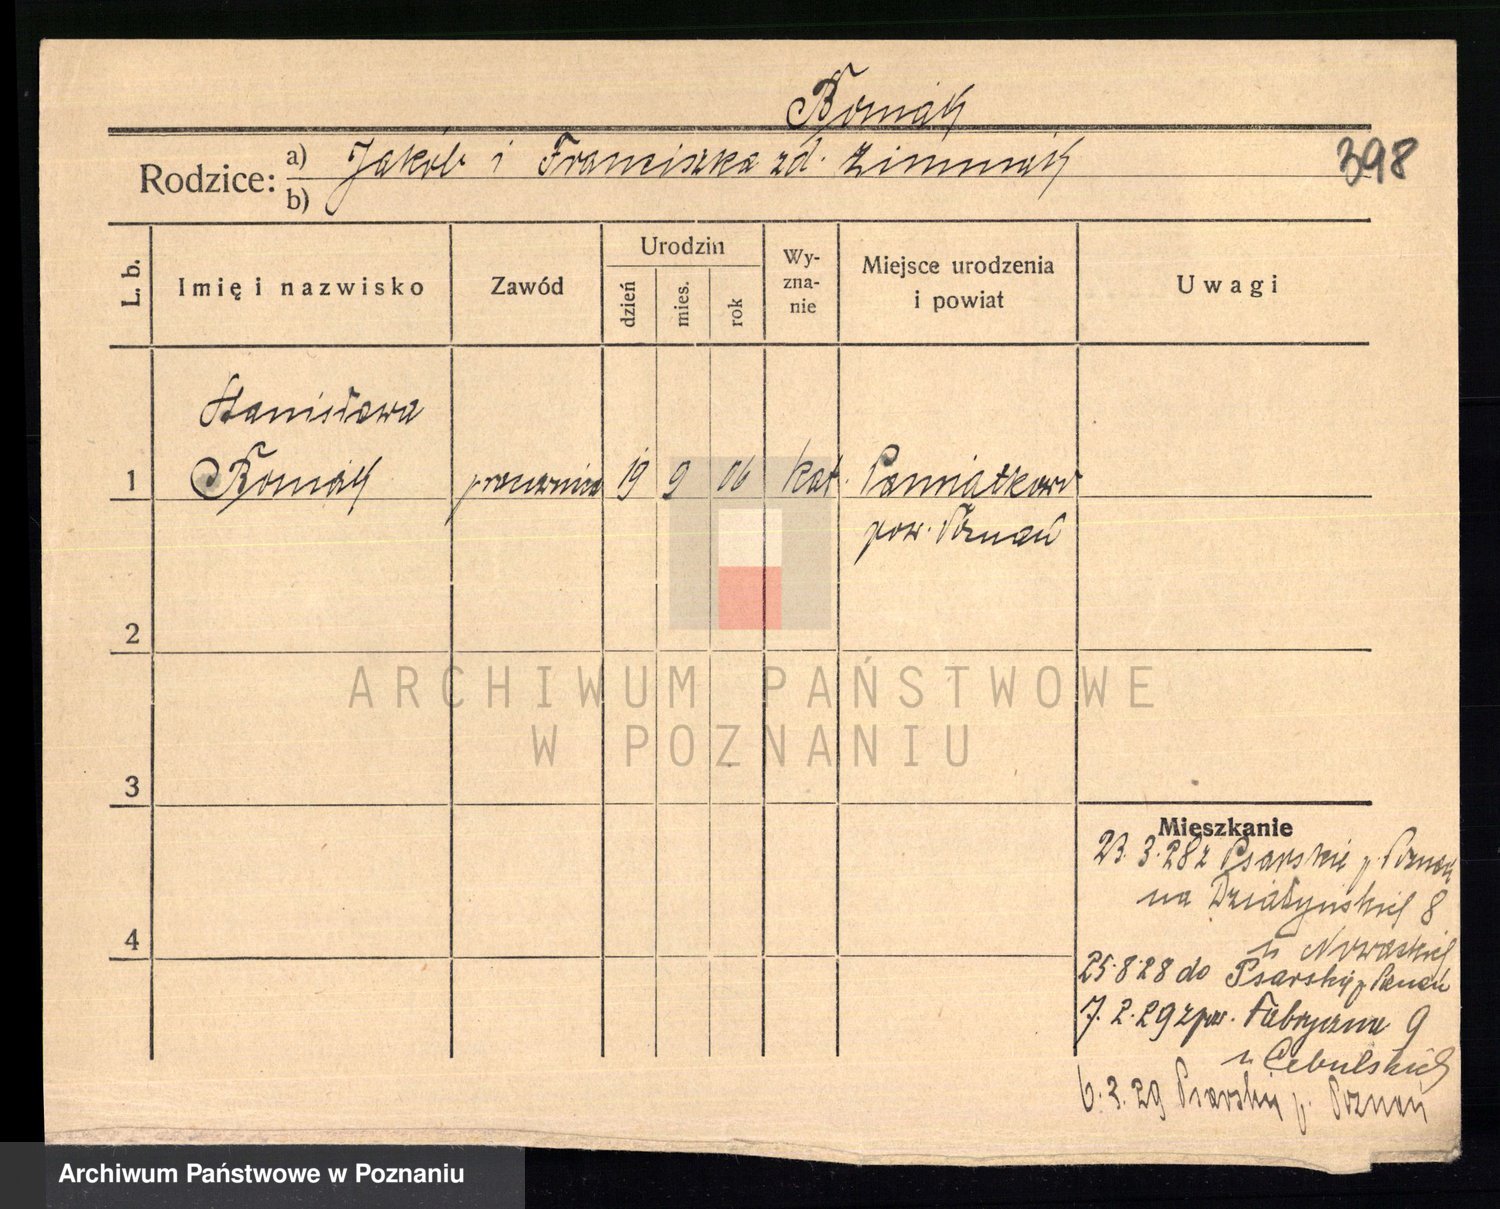 Rodzice:
a) Jakób i Franciszka zd.
b)
398
L. b.
Imię i nazwisko
Zawód
Urodzin
dzień
mies.
rok
Wy-
zna-
nie
Miejsce urodzenia
i powiat
Uwagi
Stanisława
1
19 9 06 kat. Pamiątkowo
pow. Poznań
2
3
4
ARCHIWUM PAŃSTWOWE
W POZNANIU
Mieszkanie
23.3.28 z Psarskie p. Poznań
na Działyńskich 8
u Nowackich
25.8.28 do Psarskie p. Poznań
7.2.29 z pow. Fabryczna 9
u Cebulskich
6.3.29 Psarskie p. Poznań
Archiwum Państwowe w Poznaniu